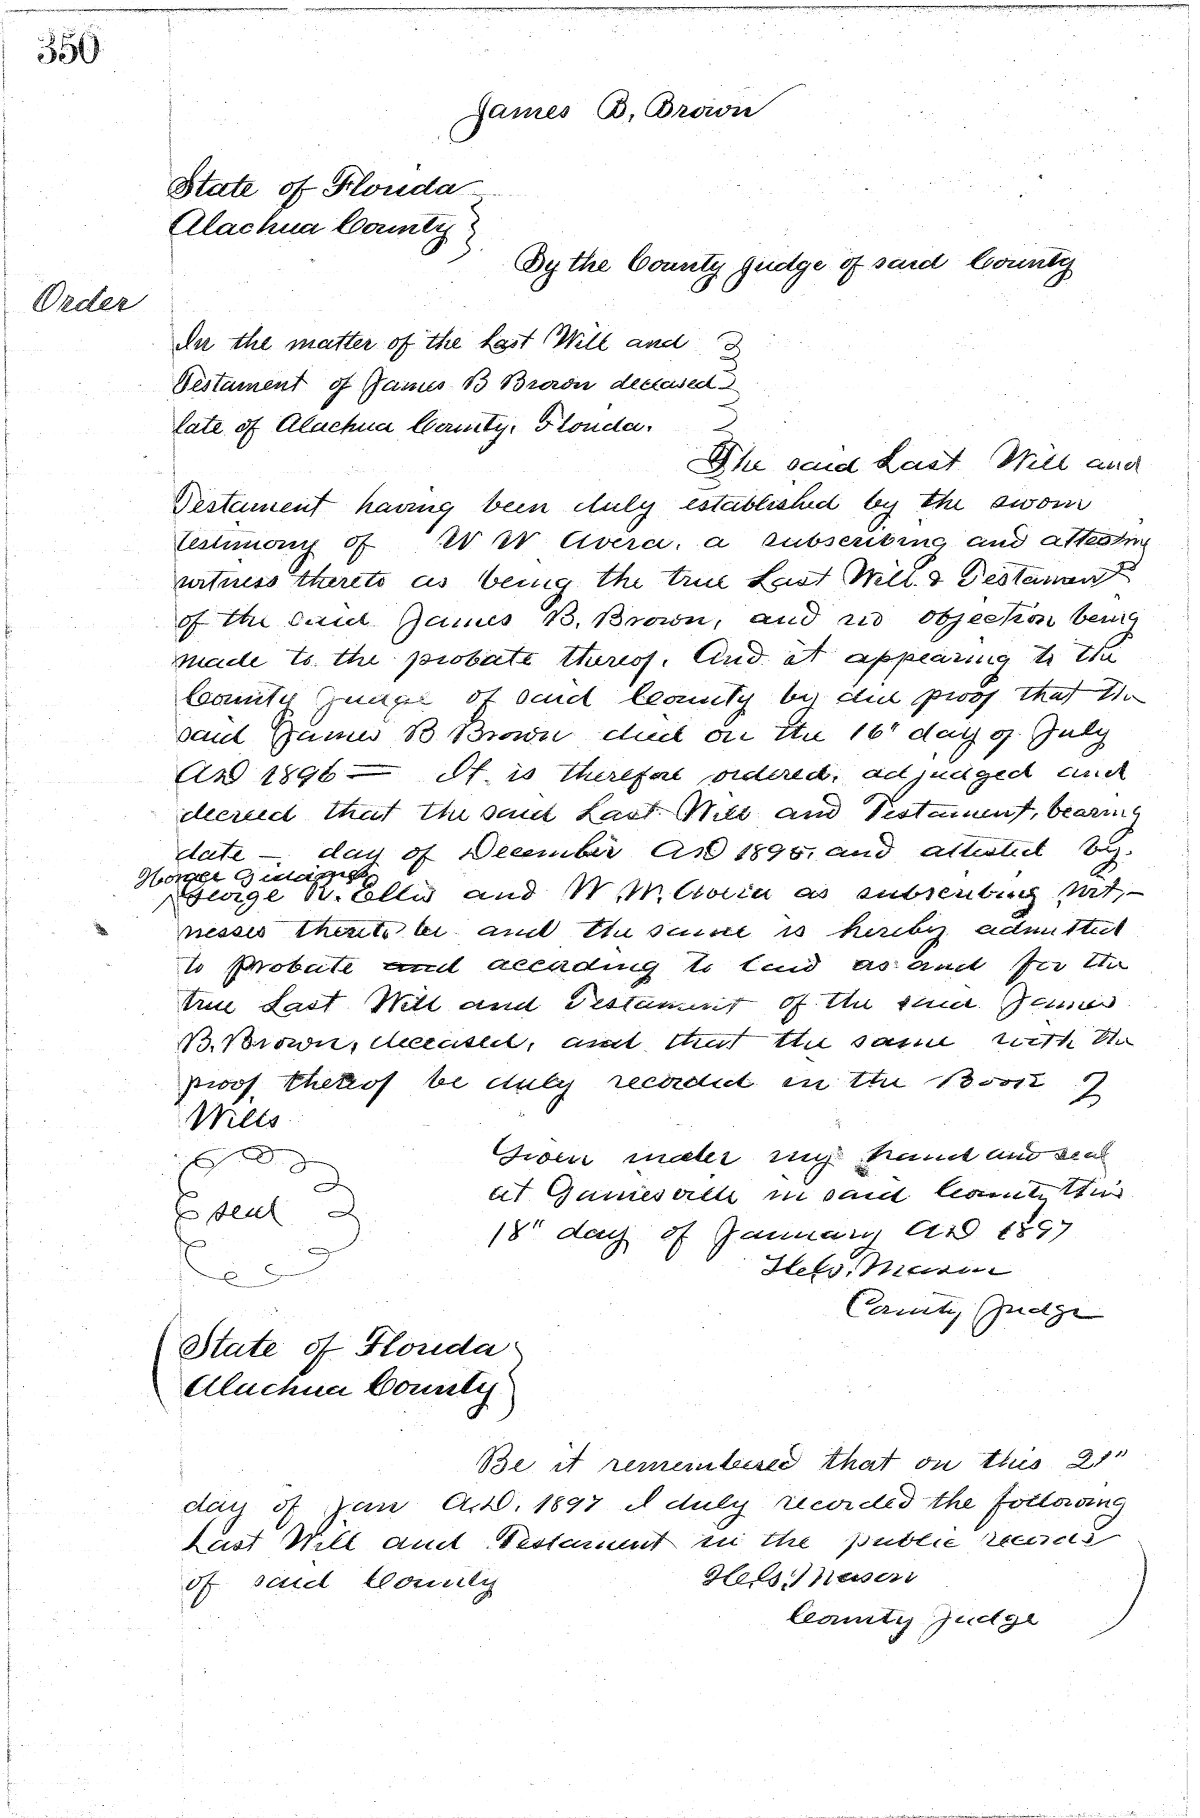 350
James B. Brown
State of Florida
Alachua County
By the County Judge of said County
Order
In the matter of the Last Will and
Testament of James B Brown deceased
late of Alachua County, Florida.
The said Last Will and
Testament having been duly established by the sworn
testimony of W W Avera, a subscribing and attesting
witness thereto as being the true Last Will & Testament
of the said James B. Brown, and no objection being
made to the probate thereof. And it appearing to the
County Judge of said County by due proof that the
said James B Brown died on the 16" day of July
AD 1896 — It is therefore ordered, adjudged and
decreed that the said Last Will and Testament, bearing
date — day of December AD 1895, and attested by
George R. Ellis and W. W. Avera as subscribing wit-
nesses thereto be and the same is hereby admitted
to Probate and according to law as and for the
true Last Will and Testament of the said James
B. Brown, deceased, and that the same with the
proof thereof be duly recorded in the Book of
Wills
Given under my hand and seal
at Gainesville in said County this
18" day of January AD 1897
seal
Mason
County Judge
State of Florida
Alachua County
Be it remembered that on this 21"
day of Jan A.D. 1897 I duly recorded the following
Last Will and Testament in the public records
of said County
Mason
County Judge